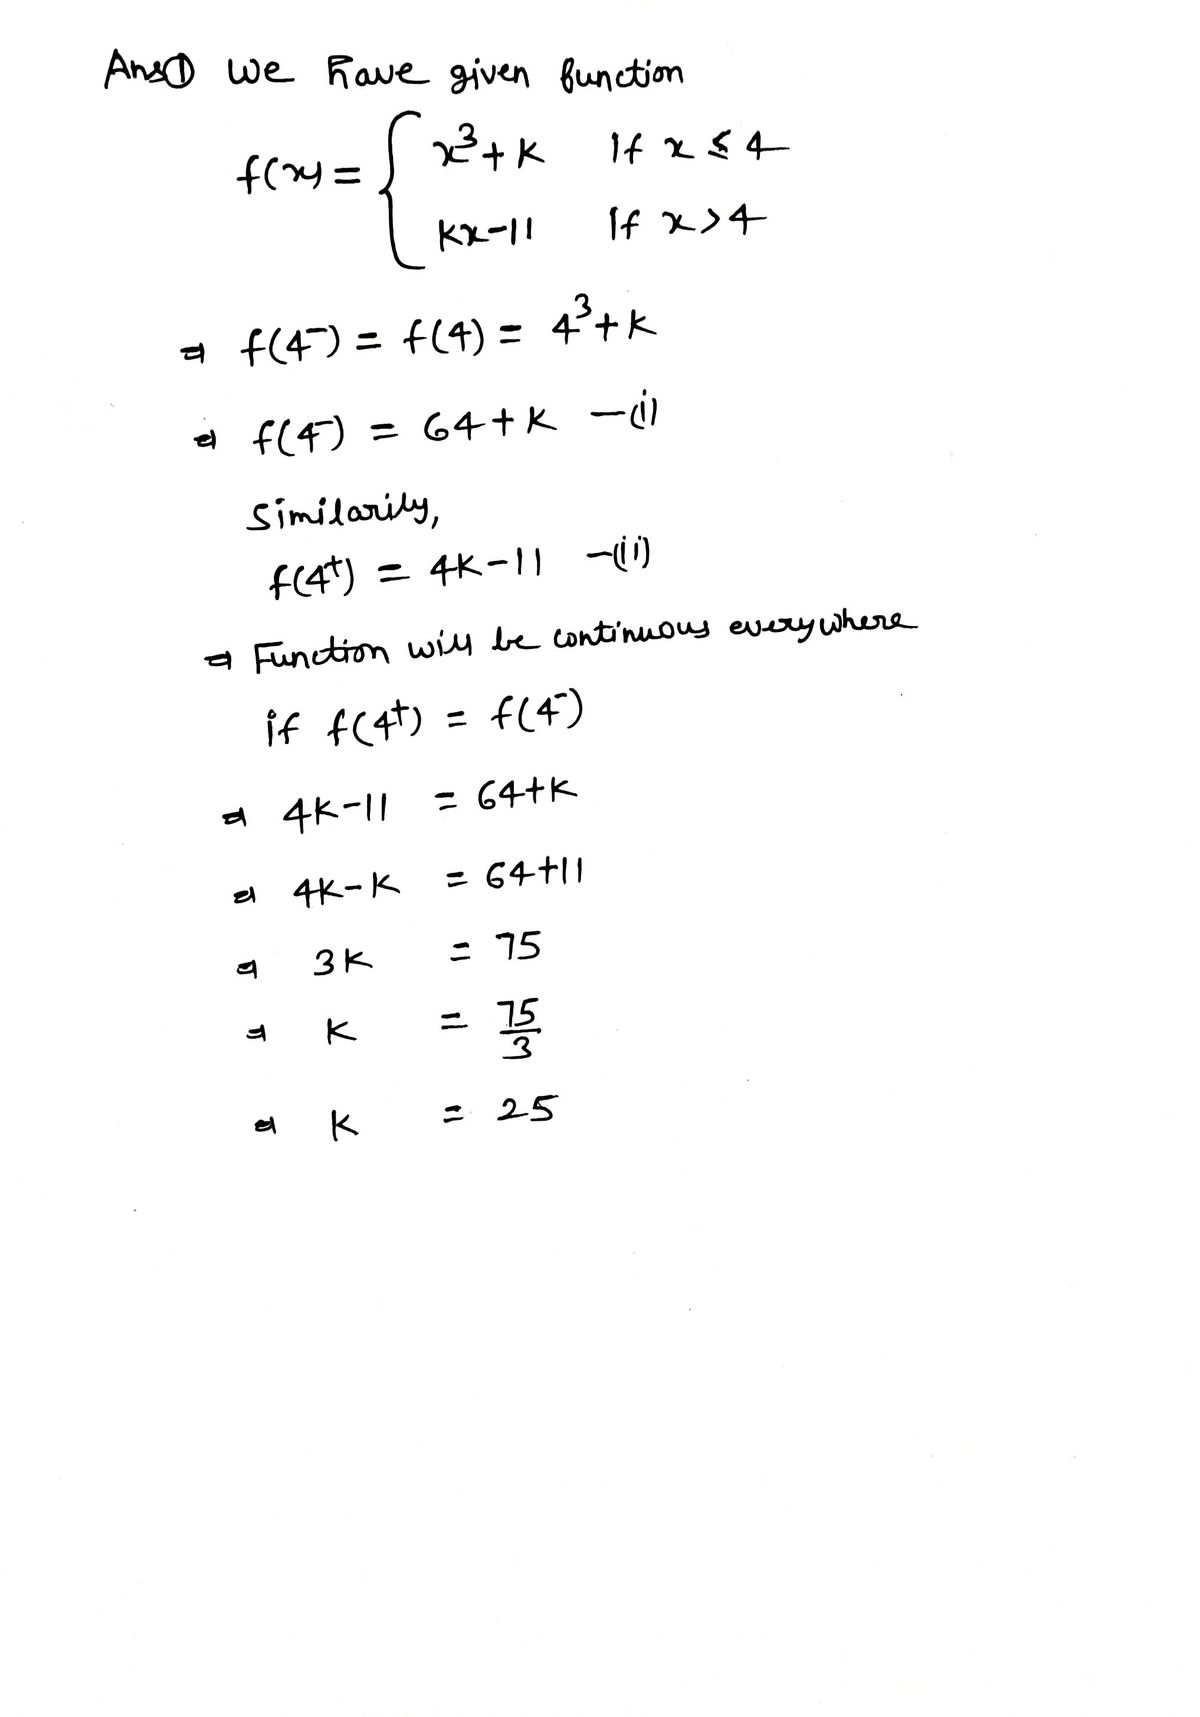 Ans① We have given function
f(x) = { x³+k If x ≤ 4
kx-11 If x>4
⇒ f(4⁻) = f(4) = 4³+k
⇒ f(4⁻) = 64+k —(i)
Similarily,
f(4⁺) = 4k-11 —(ii)
⇒ Function will be continuous everywhere
if f(4⁺) = f(4⁻)
⇒ 4k-11 = 64+k
⇒ 4k-k = 64+11
⇒ 3k = 75
⇒ k = 75/3
⇒ k = 25